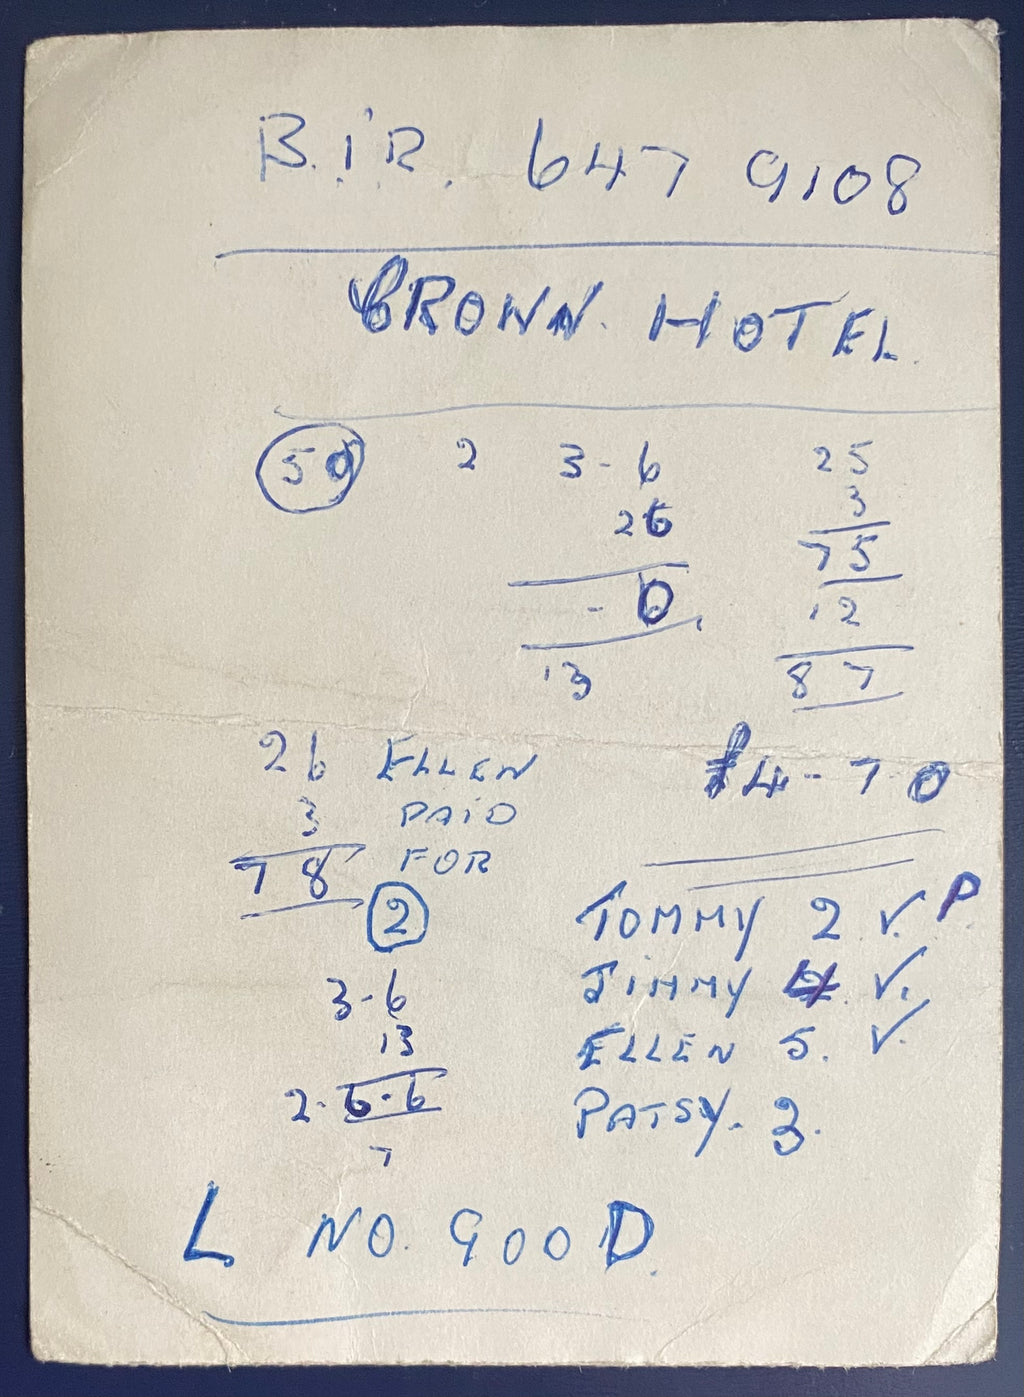 B.I.R. 647 9108
CROWN. HOTEL.
50 2 3-6 25
26 3
75
- 6 12
13 87
26 ELLEN £4-70
3 PAID
78 FOR
2 TOMMY 2 V. P.
3-6 JIMMY V.
13 ELLEN 5. V.
2. 6.6 PATSY. 3.
7
L NO. GOOD.